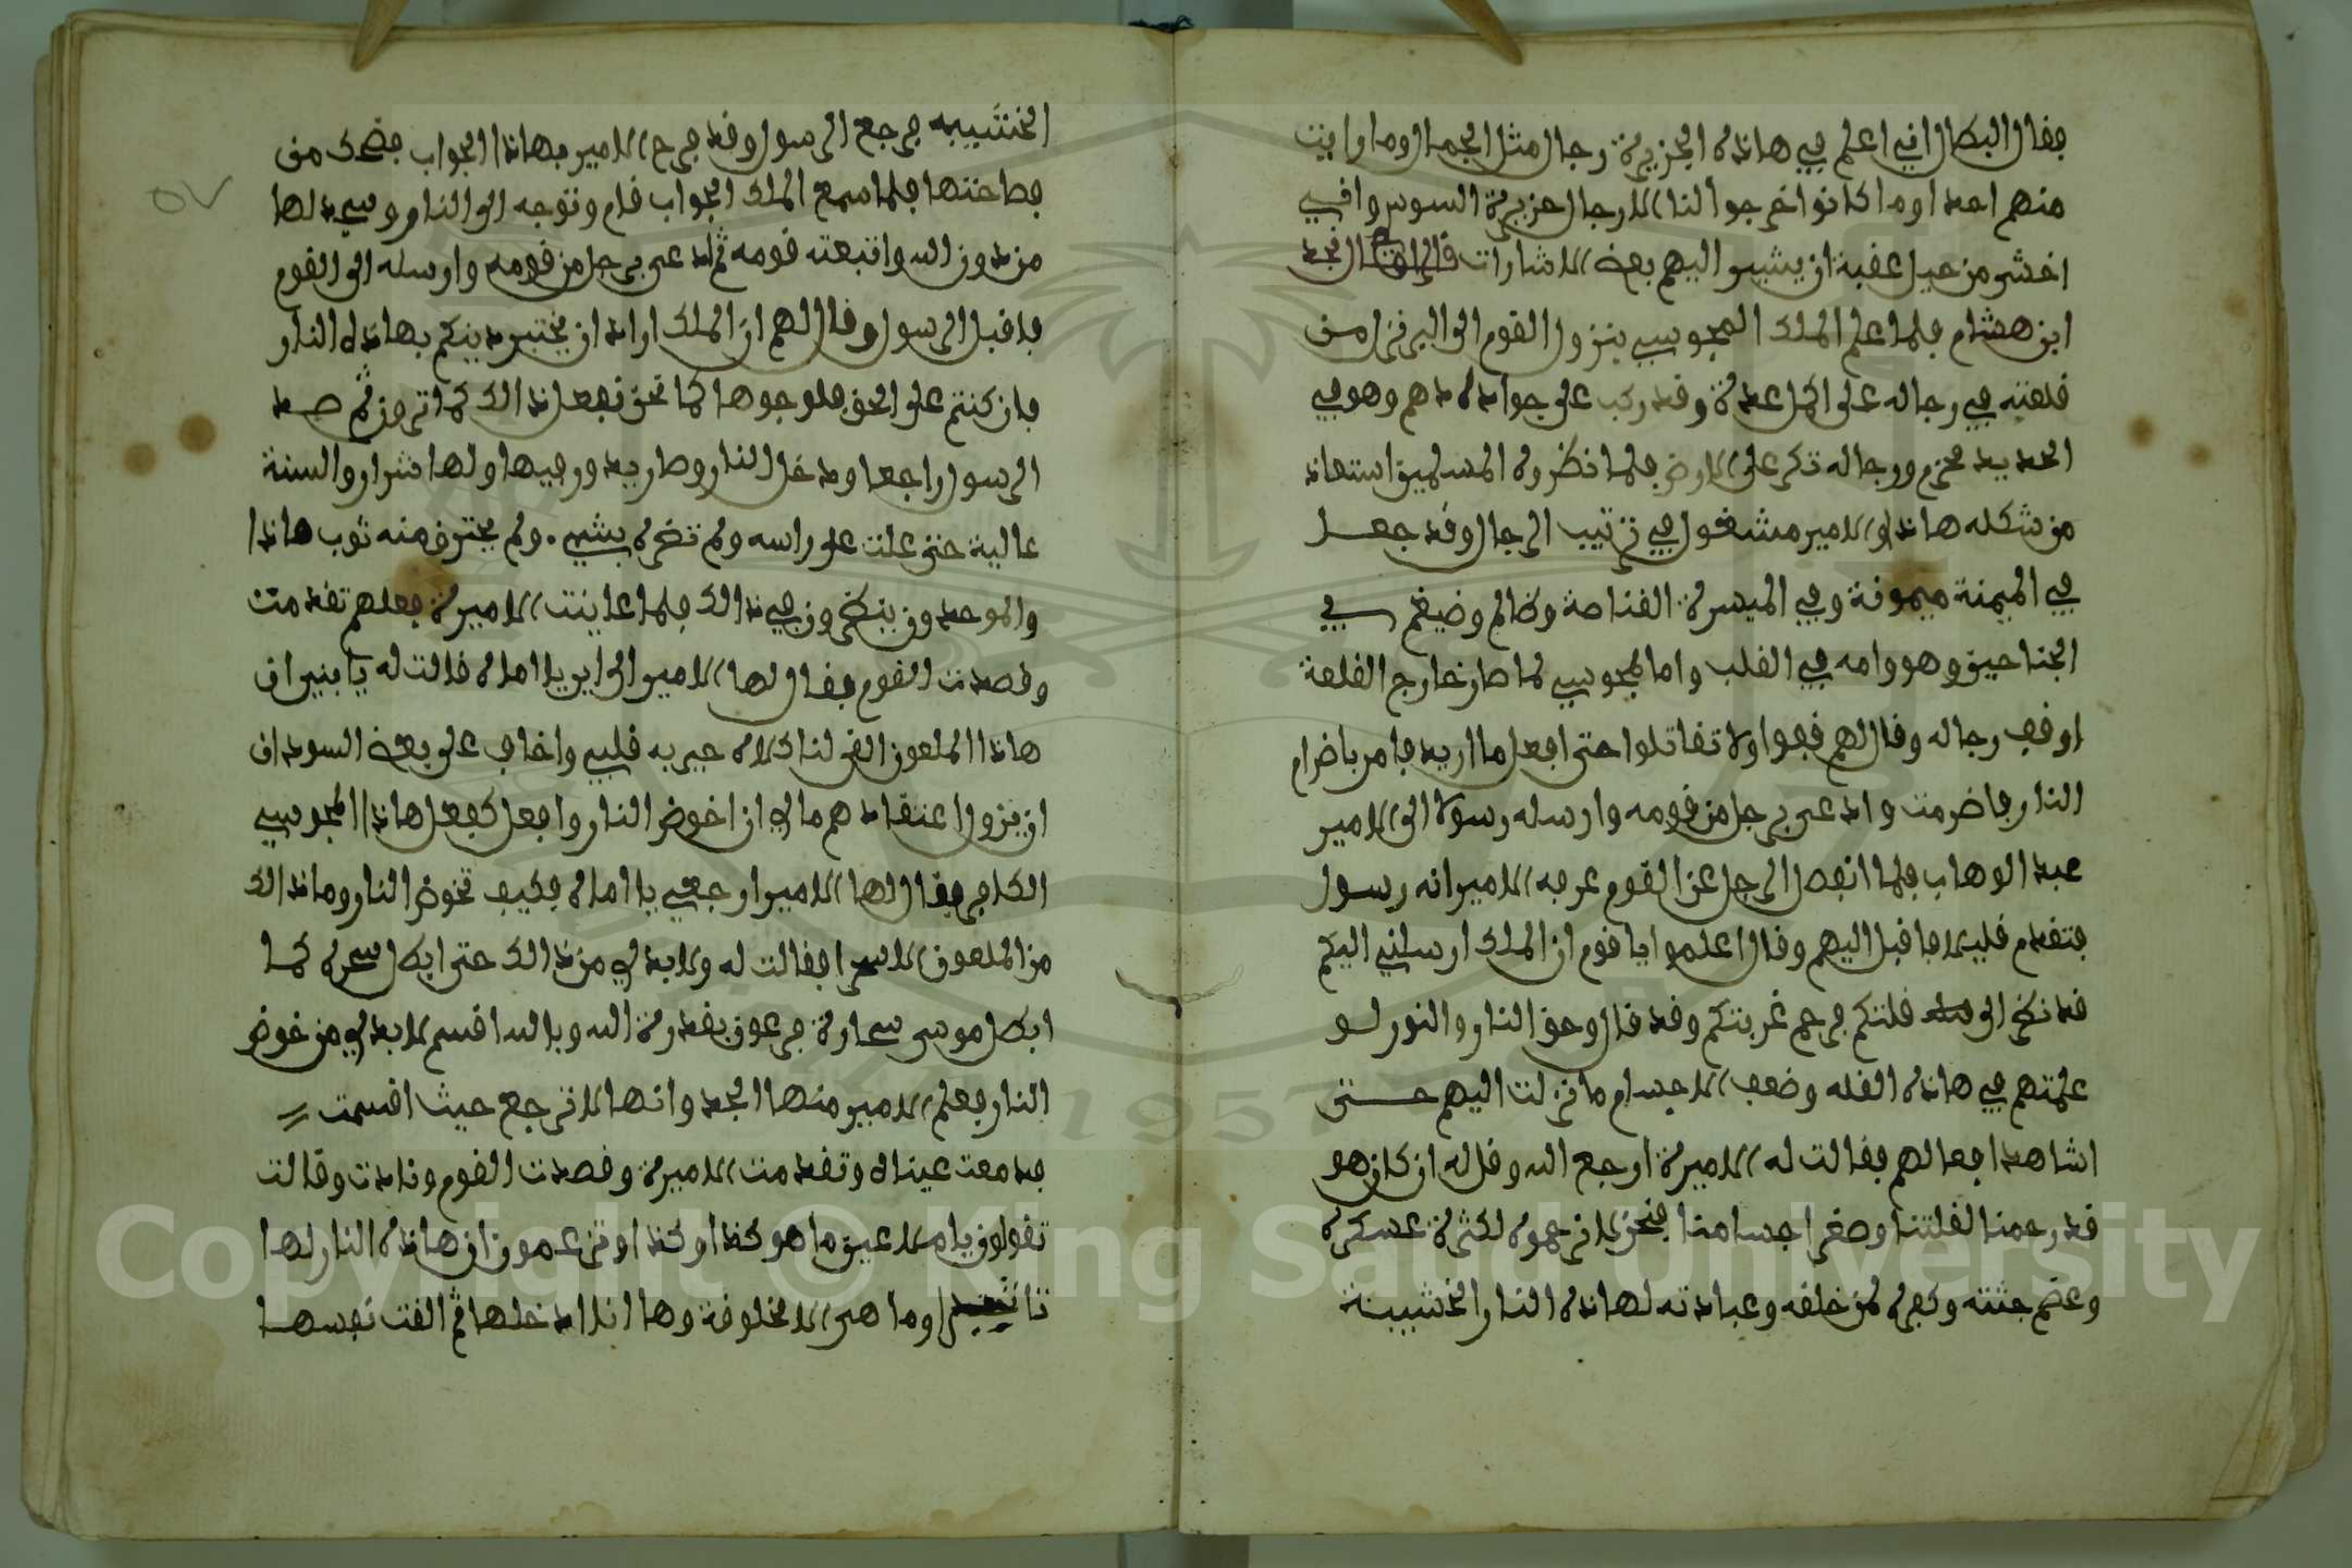 فقال البطال اني اعلم في هاذه الجزيرة رجال مثل الجمال وما رايت
منهم احدا وما كانوا اخرجوا لنا الا رجال جزيرة السوس واني
اخشى من حيل عقبة ان يشير اليهم بعض الاشارات قال نجد
ابن هشام فلما علم الملك المجوسي بنزول القوم الى البر نزل من
قلعته في رجاله على اكمل عدة وقد ركب على جواد ادهم وهو في
الحديد مخزم ورجاله تكر على الارض فلما نظروه المسلمين استعاذ
من شكله هاذا والامير مشغول في ترتيب الرجال وقد جعل
في الميمنة ميمونة وفي الميسرة القناصة وظالم وضيغم في
الجناحين وهو وامه في القلب واما المجوسي لما صار خارج القلعة
اوقف رجاله وقال لهم قفوا ولا تقاتلوا حتى افعل ما اريد فامر باضرام
النار فاضرمت وادعى برجل من قومه وارسله رسولا الى الامير
عبد الوهاب فلما انفصل الرجل عن القوم عرفه الامير انه رسول
فتقدم قليلا فاقبل اليهم وقال اعلموا يا قوم ان الملك ارسلني اليكم
قد نظر الى قلتكم فرحم غربتكم وقد قال وحق النار والنور لو
علمتهم في هاذه القله وضعف الاجسام ما نزلت اليهم حتى
اشاهد افعالهم فقالت له الاميرة ارجع اليه وقل له ان كان هو
قد رحمنا لقلتنا وصغر اجسامنا فنحن لا نرحموه لكثرة عسكره
وعظم جثته وكفره لمن خلقه وعبادته لهاذه النار الخشيبية
الخشيبيه فرجع الرسول وقد فرح الامير بهاذا الجواب فضحك من
فصاحتها فلما سمع الملك الجواب قام وتوجه الى النار وسجد لها
من دون الله واتبعته قومه ثم ادعى برجل من قومه وارسله الى القوم
فاقبل الرسول وقال لهم ان الملك اراد ان يختبر دينكم بهاذه النار
فان كنتم على الحق فلوجوها كما نحن نفعل ذالك كما ترون ثم صد
الرسول راجعا ودخل النار وصار يدور فيها ولها شرار والسنة
عالية حتى علت على راسه ولم تضره بشيء ولم يحترق منه ثوب هاذا
والموحدون ينظرون في ذالك فلما عاينت الاميرة فعلهم تقدمت
وقصدت القوم فقال لها الامير الى اين يا اماه قالت له يا بني ان
هاذا الملعون القى لنا كلام حير به قلبي واخاف على بعض السودان
ان يزول اعتقادهم مالي ان اخوض النار وافعل كفعل هاذا المجوسي
الكافر فقال لها الامير ارجعي يا اماه فكيف تخوض النار وما ذالك
من الملعون الا سحرا فقالت له ولا بد لي من ذالك حتى ابطل سحره كما
ابطل موسى سحارة فرعون بقدرة الله وبالله اقسم لا بد لي من خوض
النار فعلم الامير منها الجد وانها لا ترجع حيث اقسمت
فدمعت عيناه وتقدمت الاميرة وقصدت القوم ونادت وقالت
تقولون يا ملاعين ما هو كذا وكذا وتزعمون ان هاذه النار لها
وما هي الا مخلوقة وها انا ادخلها ثم القت نفسها
٥٧
Copyright © King Saud University
1957